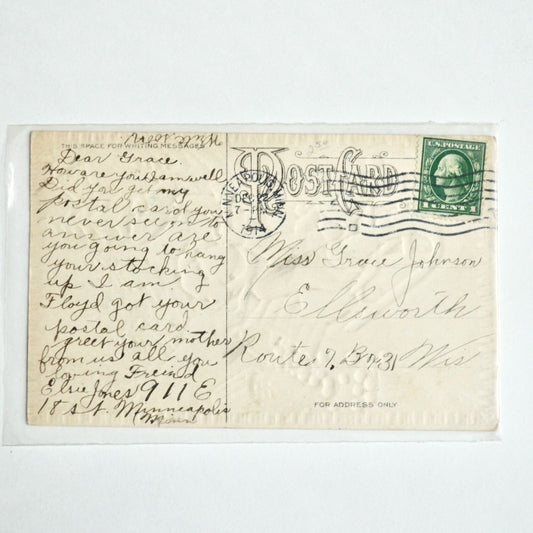 THIS SPACE FOR WRITING MESSAGES
Dear Grace.
How are you I am well
Did you get my
postal card you
never seem to
answer are
you going to hang
your stocking
up I am.
Floyd got your
postal card.
greet your mother
from us all you
loving Freind
Elsie Jones 911 E
18 st. Minneapolis
Minn
POST CARD
250
MINNEAPOLIS, MINN.
DEC 22
7-
1914
U.S. POSTAGE
1 CENT 1
Miss Grace Johnson
Ellsworth
Route 7, Box 31 Wis
FOR ADDRESS ONLY